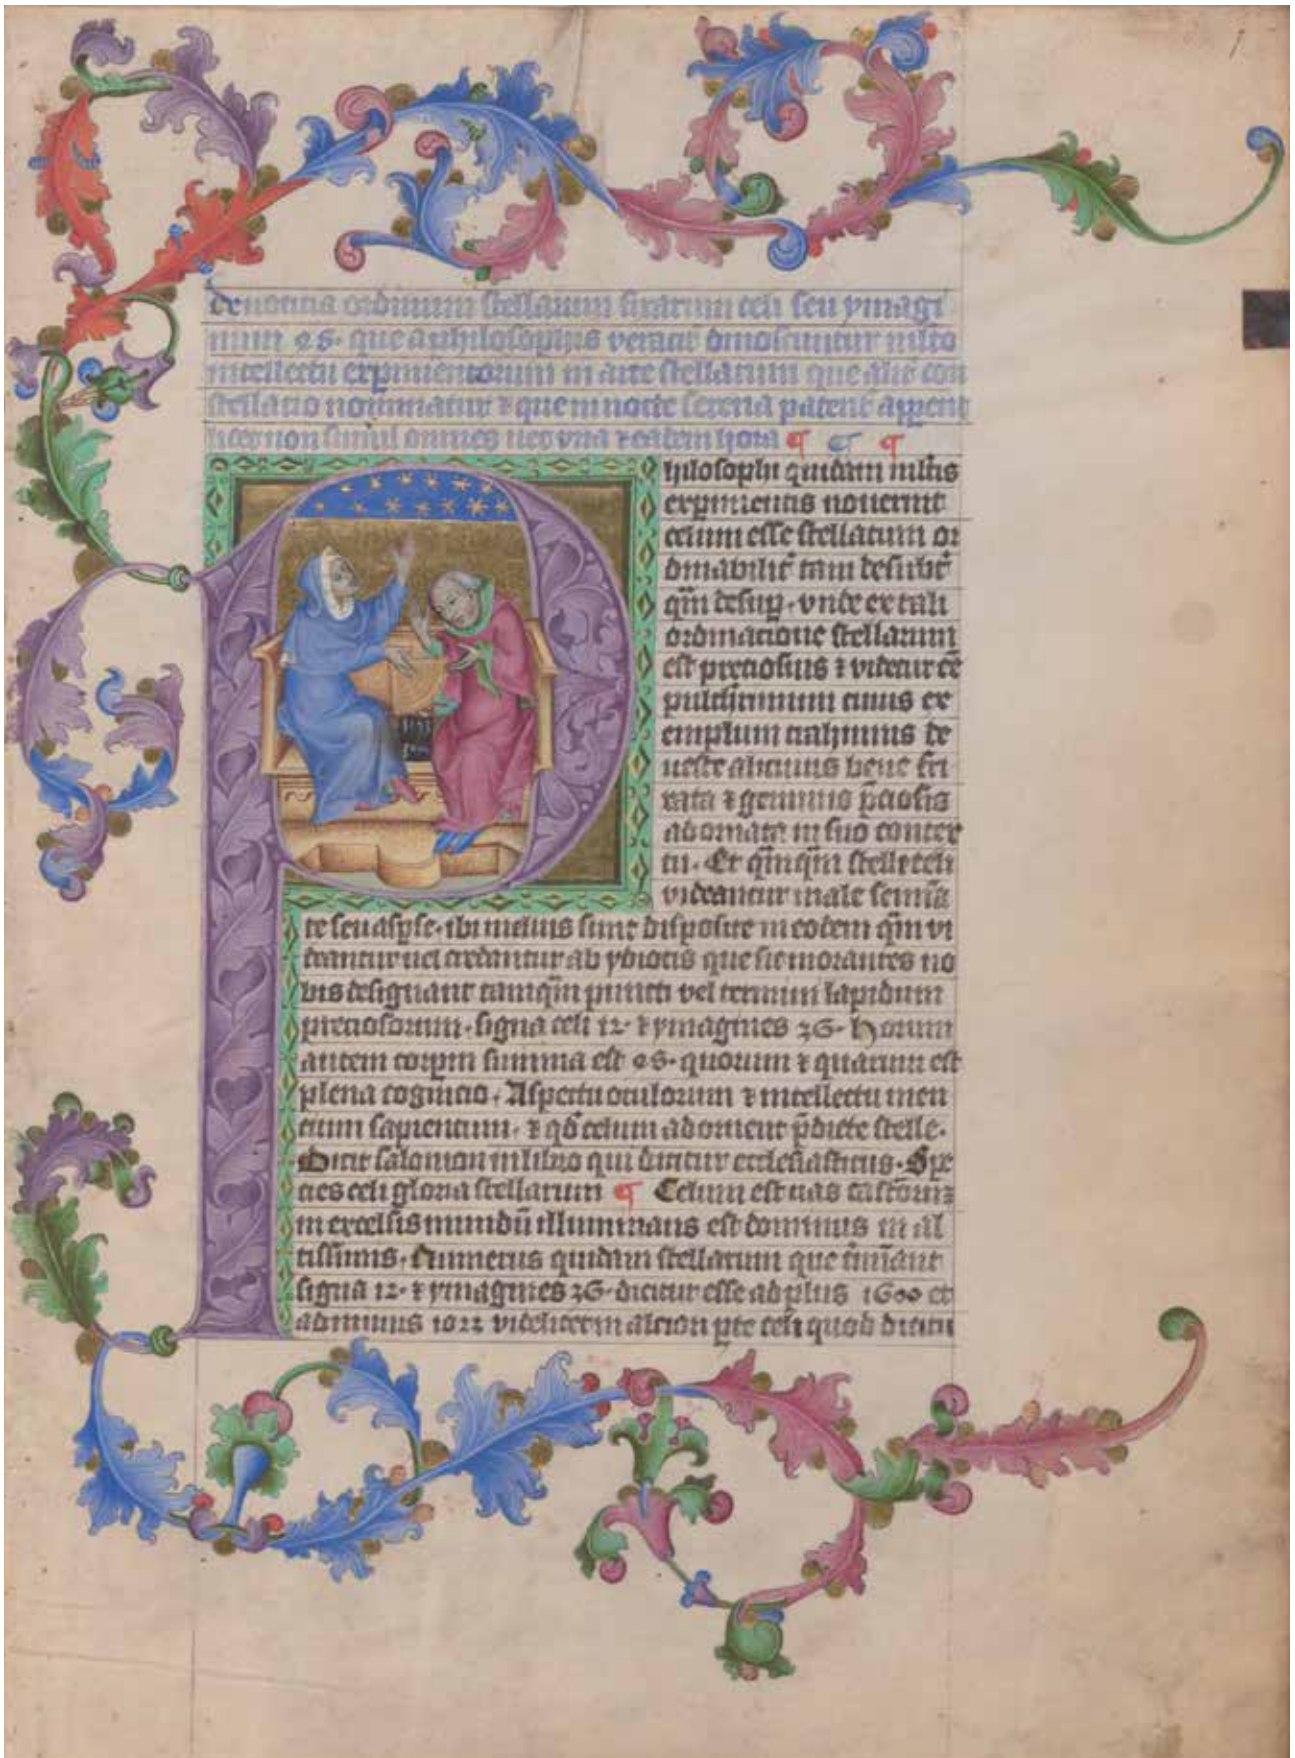 1
De noticia ordinum stellarum fixarum celi seu ymagi
num 48. que a philosophis veraciter dinoscuntur
intellectu expimentorum in arte stellarum que aliter con
stellatio nominatur ⁊ que in nocte serena patent
licet non simul omnes nec una ⁊ eadem hora ¶ ¶ ¶
Philosophi quidam
expimentis noverunt
celum esse stellatum or
dinabiliter tam desubter
qm̄ desuper. unde ex tali
ordinacione stellarum
est preciosius ⁊ videtur ēē
pulcherrimum cuius ex
emplum trahimus de
veste alicuius bene
cata ⁊ gemmis p̄ciosis
adornata in suo contex
tu. Et qm̄qm̄ stelle celi
videantur male semīa
te seu asp̱se. ibi melius sunt disposite in eodem qm̄ vi
deantur vel credantur ab ydiotis que sic morantes no
bis designant tamqm̄ puncti vel termini lapidum
preciosorum. signa celi 12. ⁊ ymagines 36. Horum
autem corpm summa est 48. quorum ⁊ quarum est
plena cognicio. Aspectu oculorum ⁊ intellectu men
tium sapientum. ⁊ qđ celum adornent p̄dicte stelle.
Dicit salomon in libro qui dicitur ecclesiasticus. Spe
cies celi gloria stellarum ¶ Celum est vas castrorum
in excelsis mundū illuminans est dominus in al
tissimis. Numerus quidam stellarum que
signa 12. ⁊ ymagines 36. dicitur esse ad plus 1600 et
ad minus 1022 videlicet in alciori pte celi quod